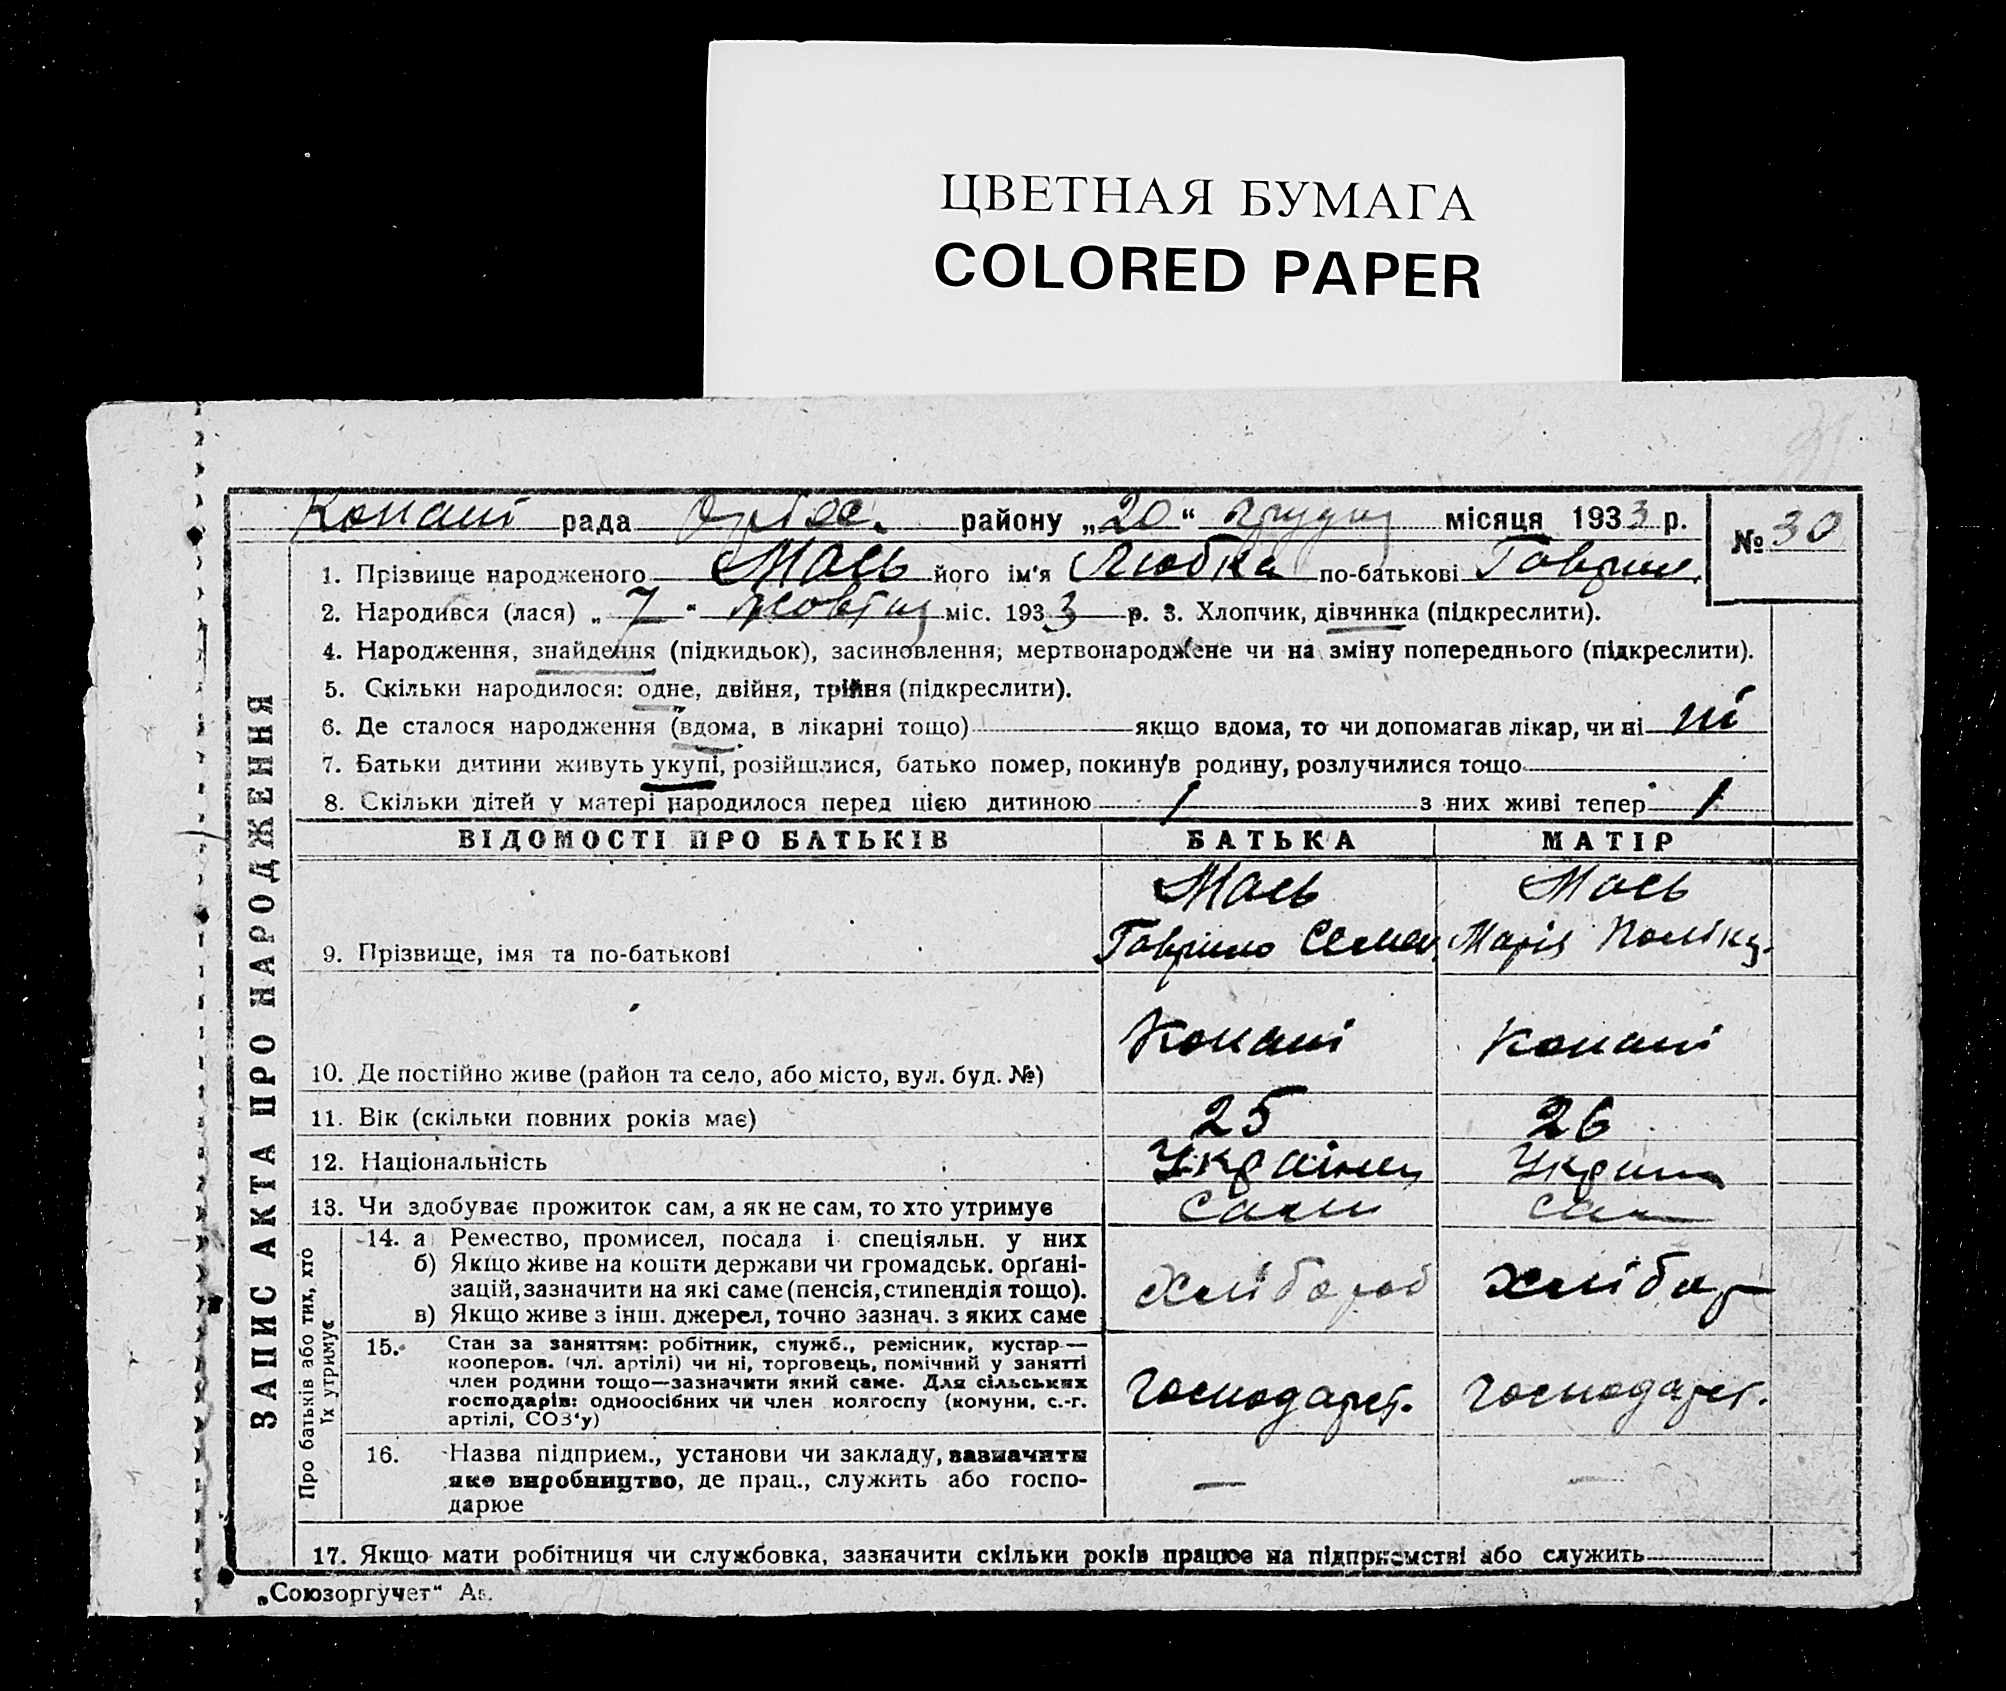 ЦВЕТНАЯ БУМАГА
COLORED PAPER
Копані рада району „20“ грудня місяця 1933 р.
№ 30
1. Прізвище народженого Мась його ім'я Любка по-батькові Гаврил.
2. Народився (лася) „7“ жовтня міс. 1933 р. 3. Хлопчик, дівчинка (підкреслити).
4. Народження, знайдення (підкидьок), засиновлення; мертвонароджене чи на зміну попереднього (підкреслити).
5. Скільки народилося: одне, двійня, трійня (підкреслити).
6. Де сталося народження (вдома, в лікарні тощо) якщо вдома, то чи допомагав лікар, чи ні ні
7. Батьки дитини живуть укупі, розійшлися, батько помер, покинув родину, розлучилися тощо
8. Скільки дітей у матері народилося перед цією дитиною 1 з них живі тепер 1
ВІДОМОСТІ ПРО БАТЬКІВ БАТЬКА МАТІР
Мась Мась
9. Прізвище, імя та по-батькові Гаврило Семен. Марія
Копані Копані
10. Де постійно живе (район та село, або місто, вул. буд. №)
11. Вік (скільки повних років має) 25 26
12. Національність Українец Украин
13. Чи здобуває прожиток сам, а як не сам, то хто утримує Сами
ЗАПИС АКТА ПРО НАРОДЖЕННЯ
Про батьків або тих, хто їх утримує
14. а Ремество, промисел, посада і спеціяльн. у них
б) Якщо живе на кошти держави чи громадськ. орґані-
зацій, зазначити на які саме (пенсія, стипендія тощо).
в) Якщо живе з інш. джерел, точно зазнач. з яких саме
Хлібороб Хлібор
15. Стан за заняттям: робітник, служб., ремісник, кустар—
кооперов. (чл. артілі) чи ні, торговець, помічний у занятті
член родини тощо—зазначити який саме. Для сільських
господарів: одноосібних чи член колгоспу (комуни, с.-г.
артілі, СОЗ'у)
Господарст. Господарст.
16. Назва підприєм., установи чи закладу, зазначити
яке виробництво, де прац., служить або госпо-
дарює
— —
17. Якщо мати робітниця чи службовка, зазначити скільки років працює на підприємстві або служить
„Союзоргучет“